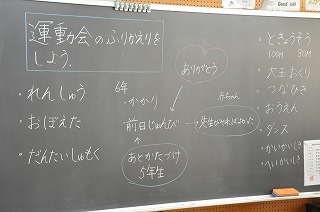 運動会のふりかえりを
しよう。
・れんしゅう
・おぼえた
・だんたいしゅもく
ありがとう
6年
・かかり
前日じゅんび
赤ちゃん
→
あとかたづけ
5年生
・ときょうそう
100m 80m
・大玉おくり
・つなひき
・おうえん
・ダンス
・かいかいしき
・へいかいしき
Good job!